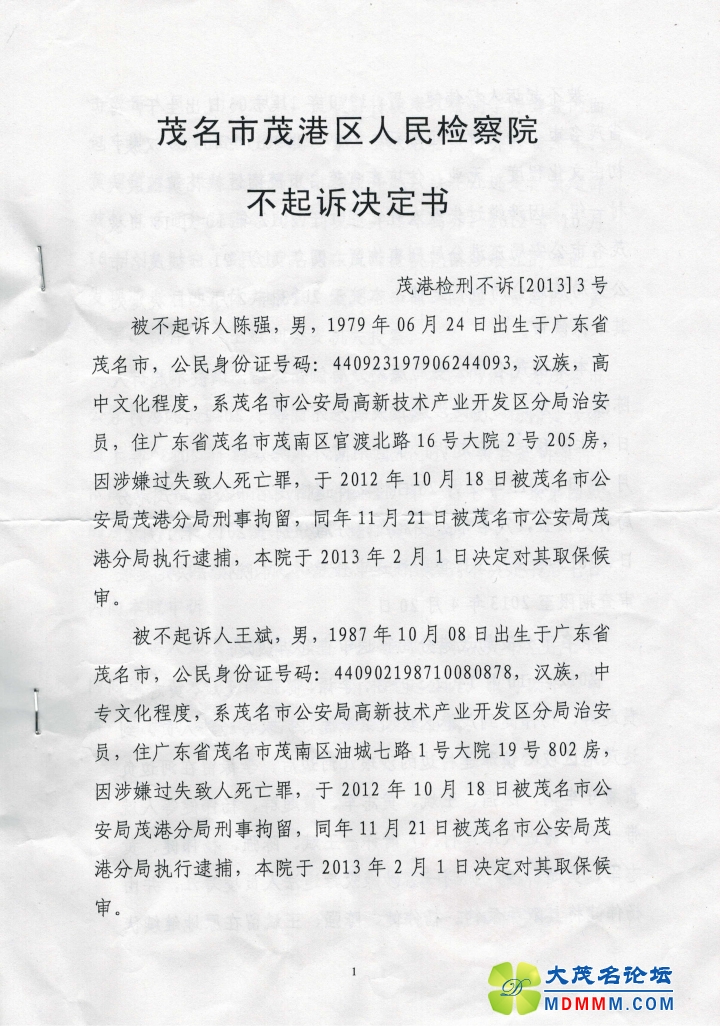 茂名市茂港区人民检察院
不起诉决定书
茂港检刑不诉[2013]3号
被不起诉人陈强，男，1979年06月24日出生于广东省
茂名市，公民身份证号码：440923197906244093，汉族，高
中文化程度，系茂名市公安局高新技术产业开发区分局治安
员，住广东省茂名市茂南区官渡北路16号大院2号205房，
因涉嫌过失致人死亡罪，于2012年10月18日被茂名市公
安局茂港分局刑事拘留，同年11月21日被茂名市公安局茂
港分局执行逮捕，本院于2013年2月1日决定对其取保候
审。
被不起诉人王斌，男，1987年10月08日出生于广东省
茂名市，公民身份证号码：440902198710080878，汉族，中
专文化程度，系茂名市公安局高新技术产业开发区分局治安
员，住广东省茂名市茂南区油城七路1号大院19号802房，
因涉嫌过失致人死亡罪，于2012年10月18日被茂名市公
安局茂港分局刑事拘留，同年11月21日被茂名市公安局茂
港分局执行逮捕，本院于2013年2月1日决定对其取保候
审。
1
大茂名论坛
MDMMM.COM